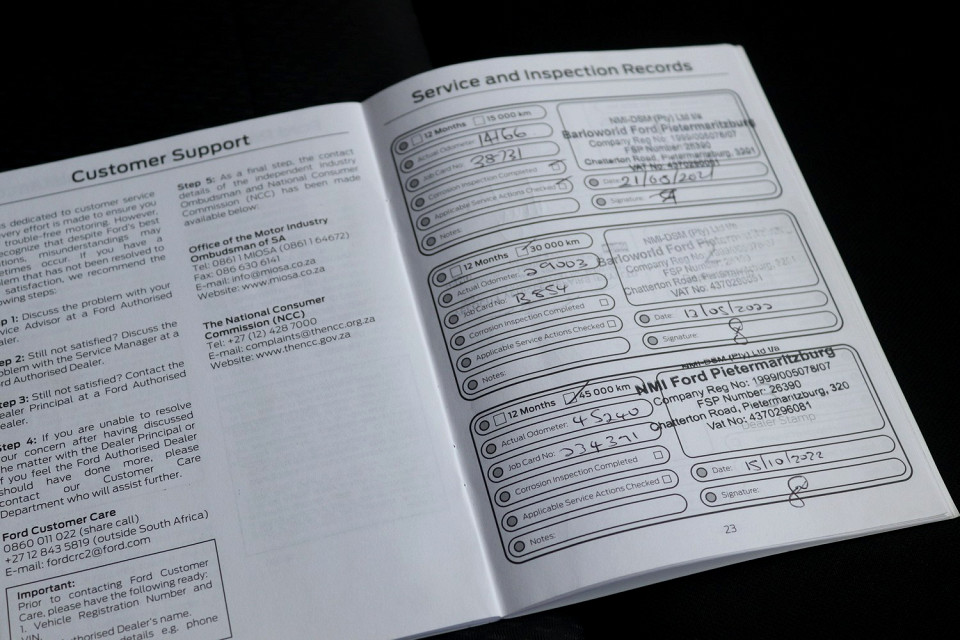 Customer Support
is dedicated to customer service
very effort is made to ensure you
trouble-free motoring. However,
recognize that despite Ford's best
misunderstandings may
occur. If you have a
that has not been resolved to
satisfaction, we recommend the
steps:
1: Discuss the problem with your
Advisor at a Ford Authorised
2: Still not satisfied? Discuss the
problem with the Service Manager at a
Ford Authorised Dealer.
Step 3: Still not satisfied? Contact the
Dealer Principal at a Ford Authorised
Dealer.
Step 4: If you are unable to resolve
your concern after having discussed
the matter with the Dealer Principal or
if you feel the Ford Authorised Dealer
should have done more, please
contact our Customer Care
Department who will assist further.
Ford Customer Care
0860 011 022 (share call)
+27 12 843 5819 (outside South Africa)
E-mail: fordcrc2@ford.com
Important:
Prior to contacting Ford Customer
Care, please have the following ready:
1. Vehicle Registration Number and
VIN.
Authorised Dealer's name.
details e.g. phone
Step 5: As a final step, the contact
details of the independent Industry
Ombudsman and National Consumer
Commission (NCC) has been made
available below:
Office of the Motor Industry
Ombudsman of SA
Tel: 0861 1 MIOSA (0861 1 64672)
Fax: 086 630 6141
E-mail: info@miosa.co.za
Website: www.miosa.co.za
The National Consumer
Commission (NCC)
Tel: +27 (12) 428 7000
E-mail: complaints@thencc.org.za
Website: www.thencc.gov.za
Service and Inspection Records
12 Months 15 000 km
Actual Odometer: 14166
Job Card No: 38731
Corrosion Inspection Completed
Applicable Service Actions Checked
Notes:
NMI-DSM (Pty) Ltd t/a
Barloworld Ford Pietermaritzburg
Company Reg No: 1999/005078/07
FSP Number: 26390
Chatterton Road, Pietermaritzburg, 3201
VAT No: 4370296081
Date: 21/05/2021
Signature:
12 Months 30 000 km
Actual Odometer: 29003
Job Card No: B854
Corrosion Inspection Completed
Applicable Service Actions Checked
Notes:
NMI-DSM (Pty) Ltd t/a
Barloworld Ford Pietermaritzburg
Company Reg No:
FSP Number:
Chatterton Road, Pietermaritzburg,
VAT No: 4370296081
Date: 12/05/2022
Signature:
12 Months 45 000 km
Actual Odometer: 45240
Job Card No: 234371
Corrosion Inspection Completed
Applicable Service Actions Checked
Notes:
NMI-DSM (Pty) Ltd t/a
NMI Ford Pietermaritzburg
Company Reg No: 1999/005078/07
FSP Number: 26390
Chatterton Road, Pietermaritzburg, 320
Vat No: 4370296081
Dealer Stamp
Date: 15/10/2022
Signature:
23